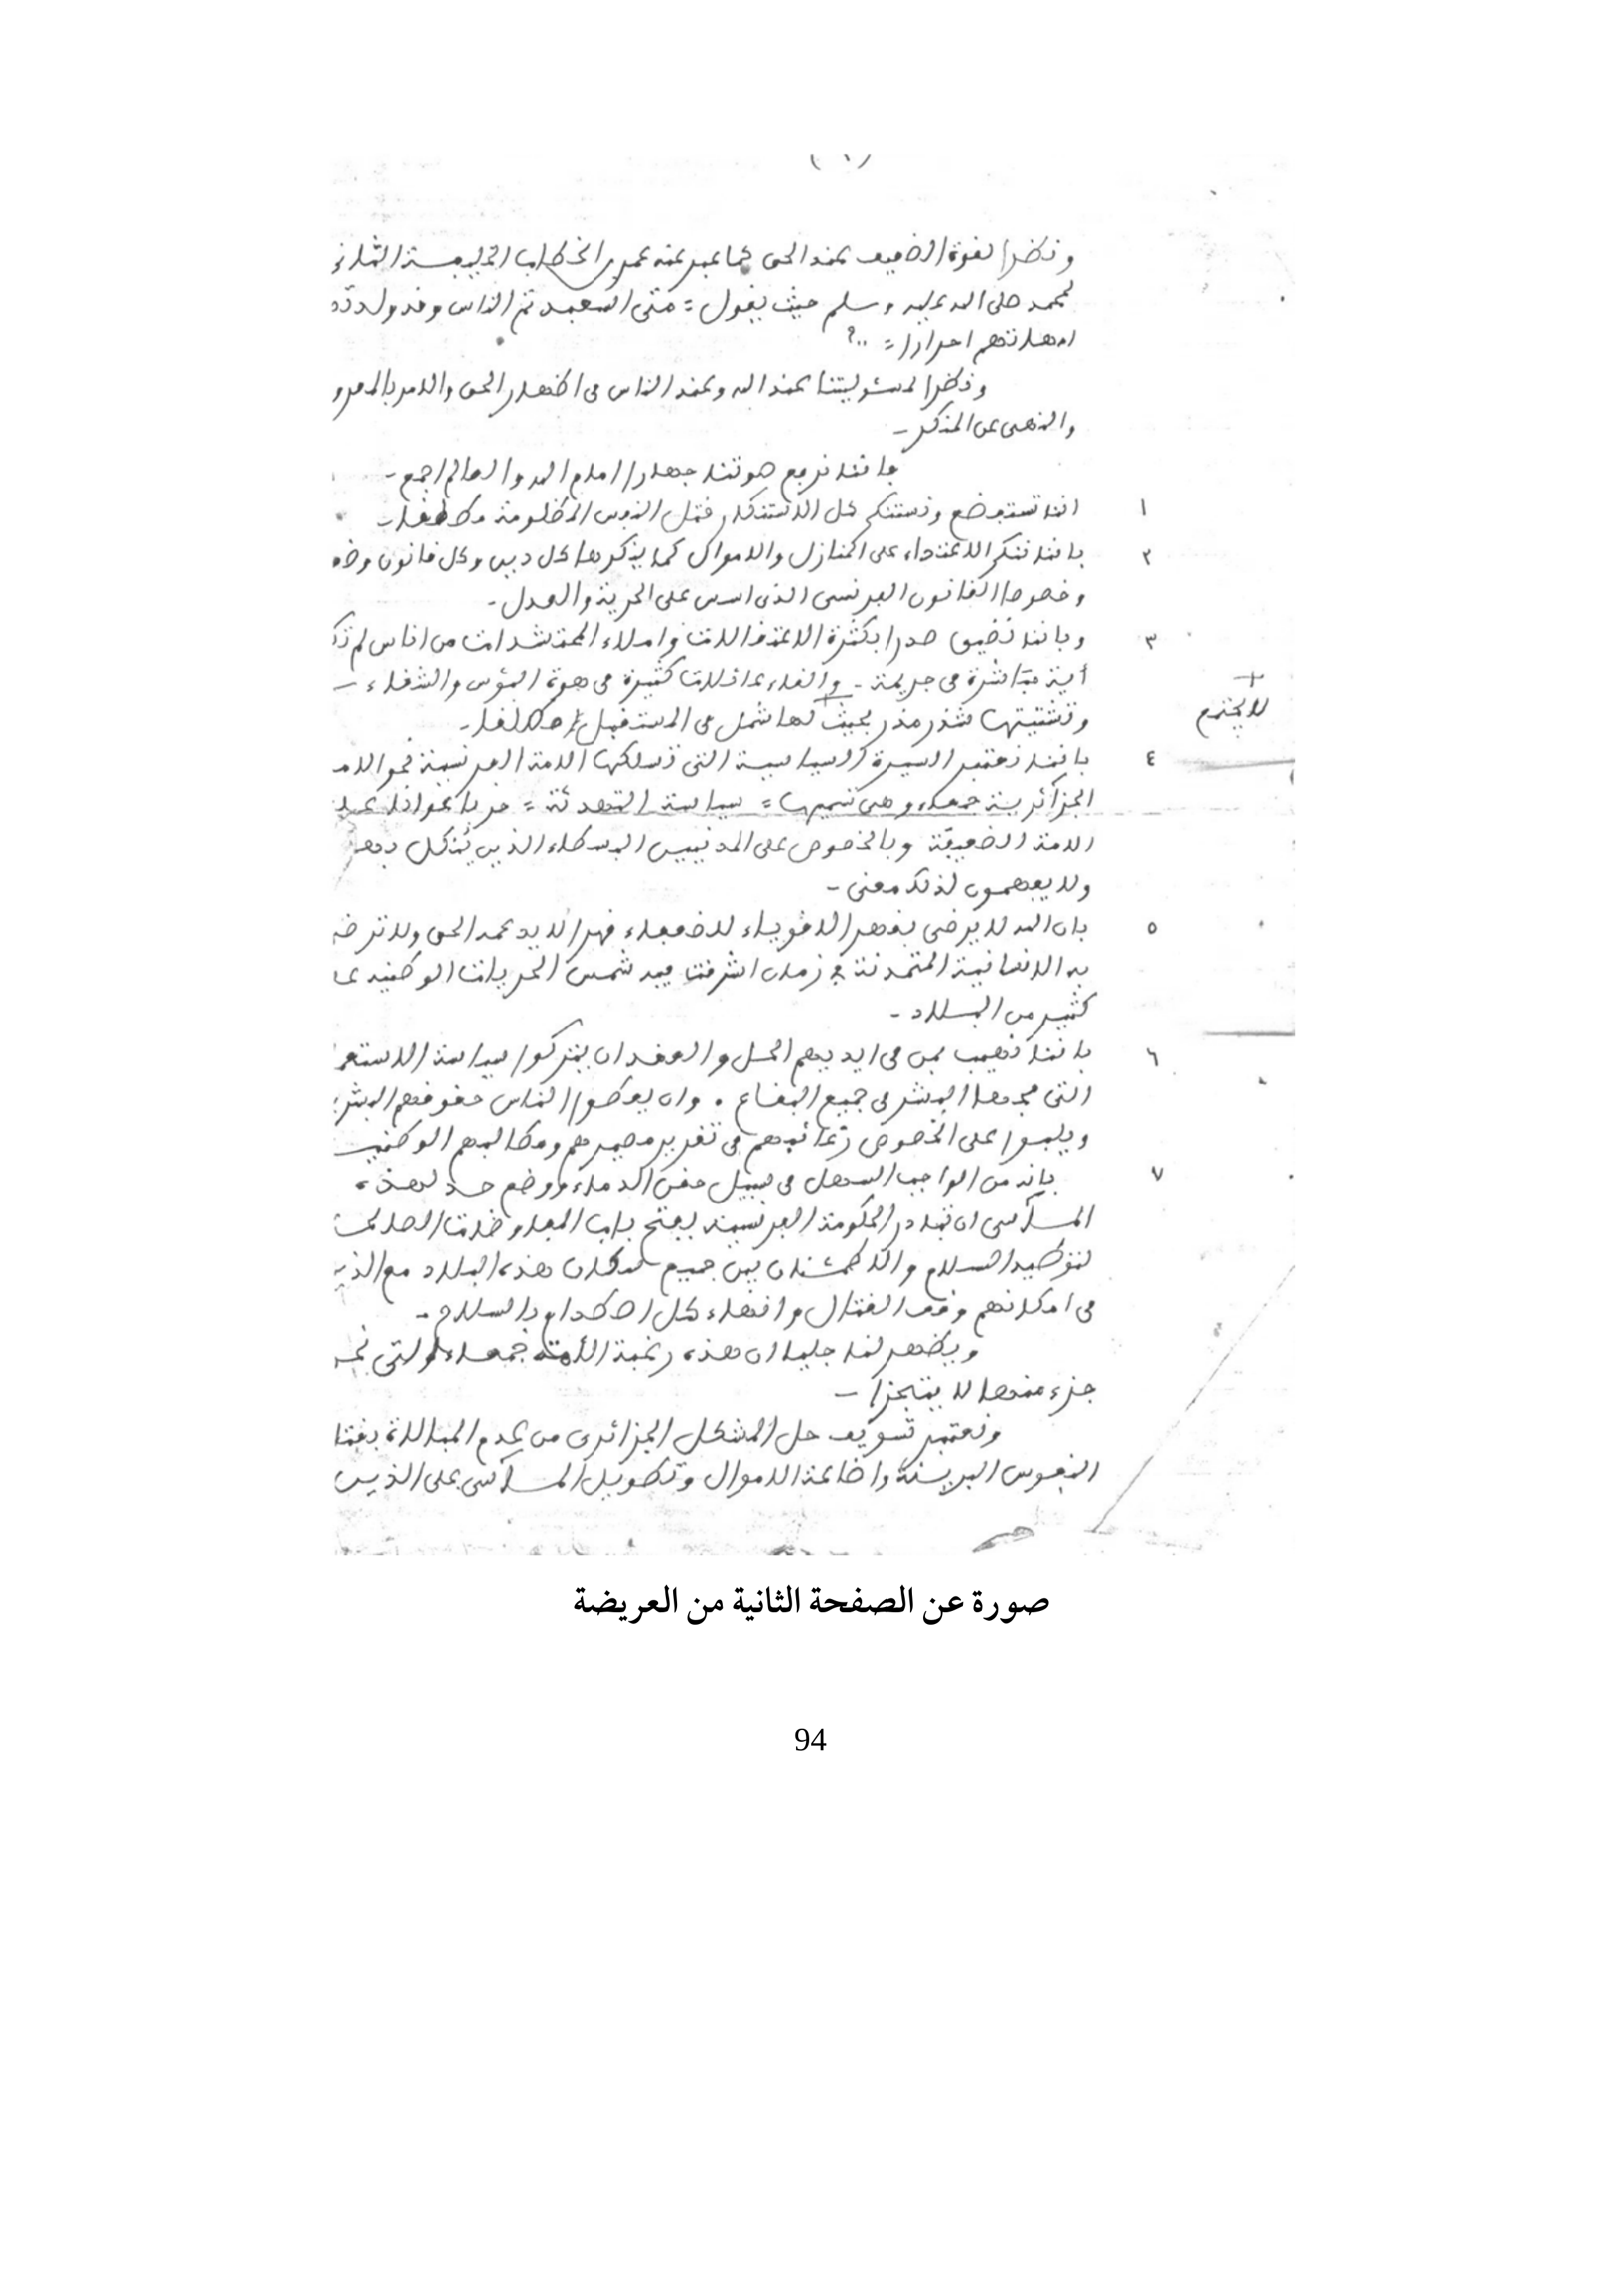 ونظرا لقوة الضعيف عند الحق كما عبر عنه عمر بن الخطاب الخليفة الثاني
لمحمد صلى الله عليه وسلم حيث يقول = متى استعبدتم الناس وقد ولدته
امهاتهم احرارا = ..؟
ونظرا لمسئوليتنا عند الله وعند الناس في اظهار الحق والامر بالمعرو
والنهي عن المنكر -
فاننا نرفع صوتنا جهارا امام الله والعالم اجمع -
١ اننا نستفضع ونستنكر كل الاستنكار قتل النفوس المظلومة
٢ باننا ننكر الاعتداء على المنازل والاموال كما ينكرها كل دين وكل قانون
وخصوصا القانون الفرنسي الذي اسس على الحرية والعدل -
٣ وباننا نضيق صدرا بكثرة الاعتقالات وامتلاء المحتشدات من اناس لم
أية مباشرة في جريمة - والقاء عائلات كثيرة في هوة البؤس والشقاء -
وتشتيتها شذر مذر بحيث لها شمل في المستقبل
للايجتمع
٤ باننا نعتبر السيرة السياسية التي تسلكها الامة الفرنسية نحو الامـ
الجزائرية جمعاء وهي تسميها = سياسة التهدئة = حربا عوانا على
الامة الضعيفة وبالخصوص على المدنيين البسطاء الذين ينكل
ولا يفهمون لذلك معنى -
٥ بان الله لا يرضى بقهر الاقوياء للضعفاء قهرا لا يد عند الحق ولا ترضـ
به الانسانية المتمدنة في زمان اشرقت فيه شمس الحريات الوطنية
كثير من البلاد -
٦ باننا نهيب بمن في ايديهم الحل والعقد ان يتركوا سياسة الاستعمـ
التي مجها البشر في جميع البقاع . وان يعطوا الناس حقوقهم البشر
ويلبوا على الخصوص رغائبهم في تقرير مصيرهم ومطالبهم الوطنيـ
٧ بانه من الواجب السهل في سبيل حقن الدماء ووضع حد لهذه
المآسي ان تبادر الحكومة الفرنسية بفتح باب المفاوضات الصالحة
لتوطيد السلام والاطمئنان بين جميع سكان هذه البلاد مع الذيـ
في امكانهم وقف القتال وانهاء كل اصطدام بالسلاح -
ويظهر لنا جليا ان هذه رغبة الأمة جمعاء والتي نحـ
جزء منها لا يتجزأ -
ونعتبر تسويف حل المشكل الجزائري من عدم المبالاة بفنا
النفوس البريئة واضاعة الاموال وتطويل المآسي على الذين
صورة عن الصفحة الثانية من العريضة
94